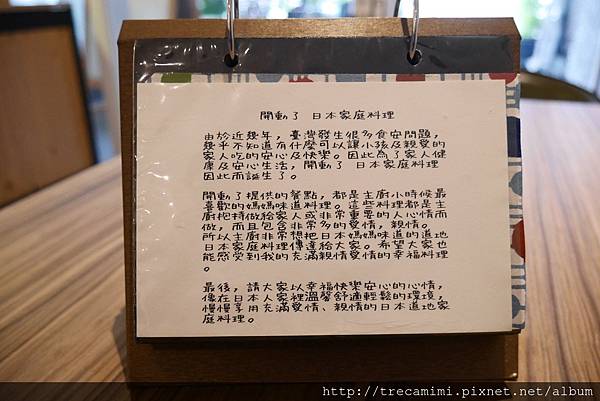 開動了 日本家庭料理
由於近幾年，臺灣發生很多食安問題，
幾乎不知道有什麼可以讓小孩及親愛的
家人吃的安心及快樂。因此為了家人健
康及安心生活，開動了 日本家庭料理
因此而誕生了。
開動了提供的餐點，都是主廚小時候最
喜歡的媽媽味道料理。這些料理都是主
廚把持做給家人或非常重要的人心情而
做，而且包含非常多的愛情，親情。
所以主廚非常想把日本媽媽味道的道地
日本家庭料理傳達給大家。希望大家也
能感受到我的充滿親情愛情的幸福料理
。
最後，請大家以幸福快樂安心的心情，
像在日本人家裡溫馨舒適輕鬆的環境，
慢慢享用充滿愛情、親情的日本道地家
庭料理。
http://trecamimi.pixnet.net/album